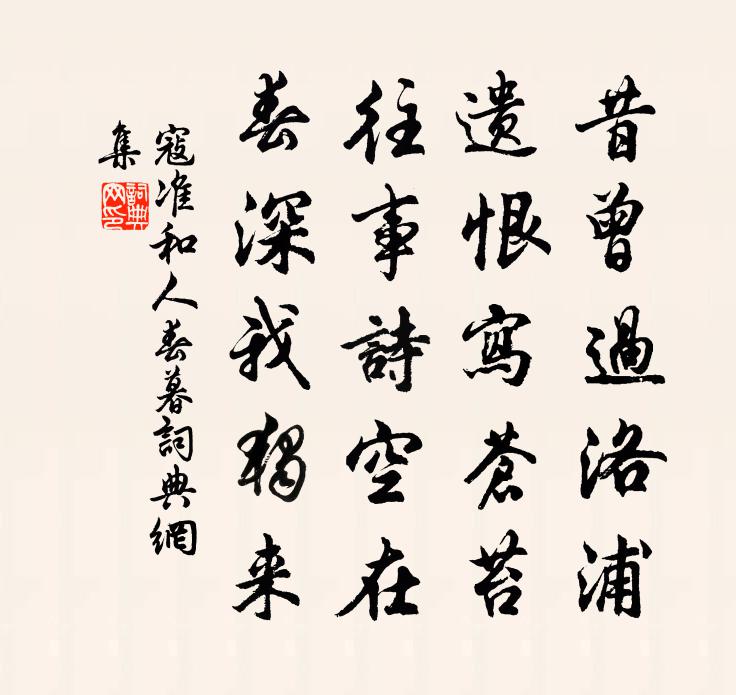 昔曾過洛浦
遗恨寫蒼苔
往事詩空在
春深我獨来
寇准和人春暮詞典網
集
詞典网印